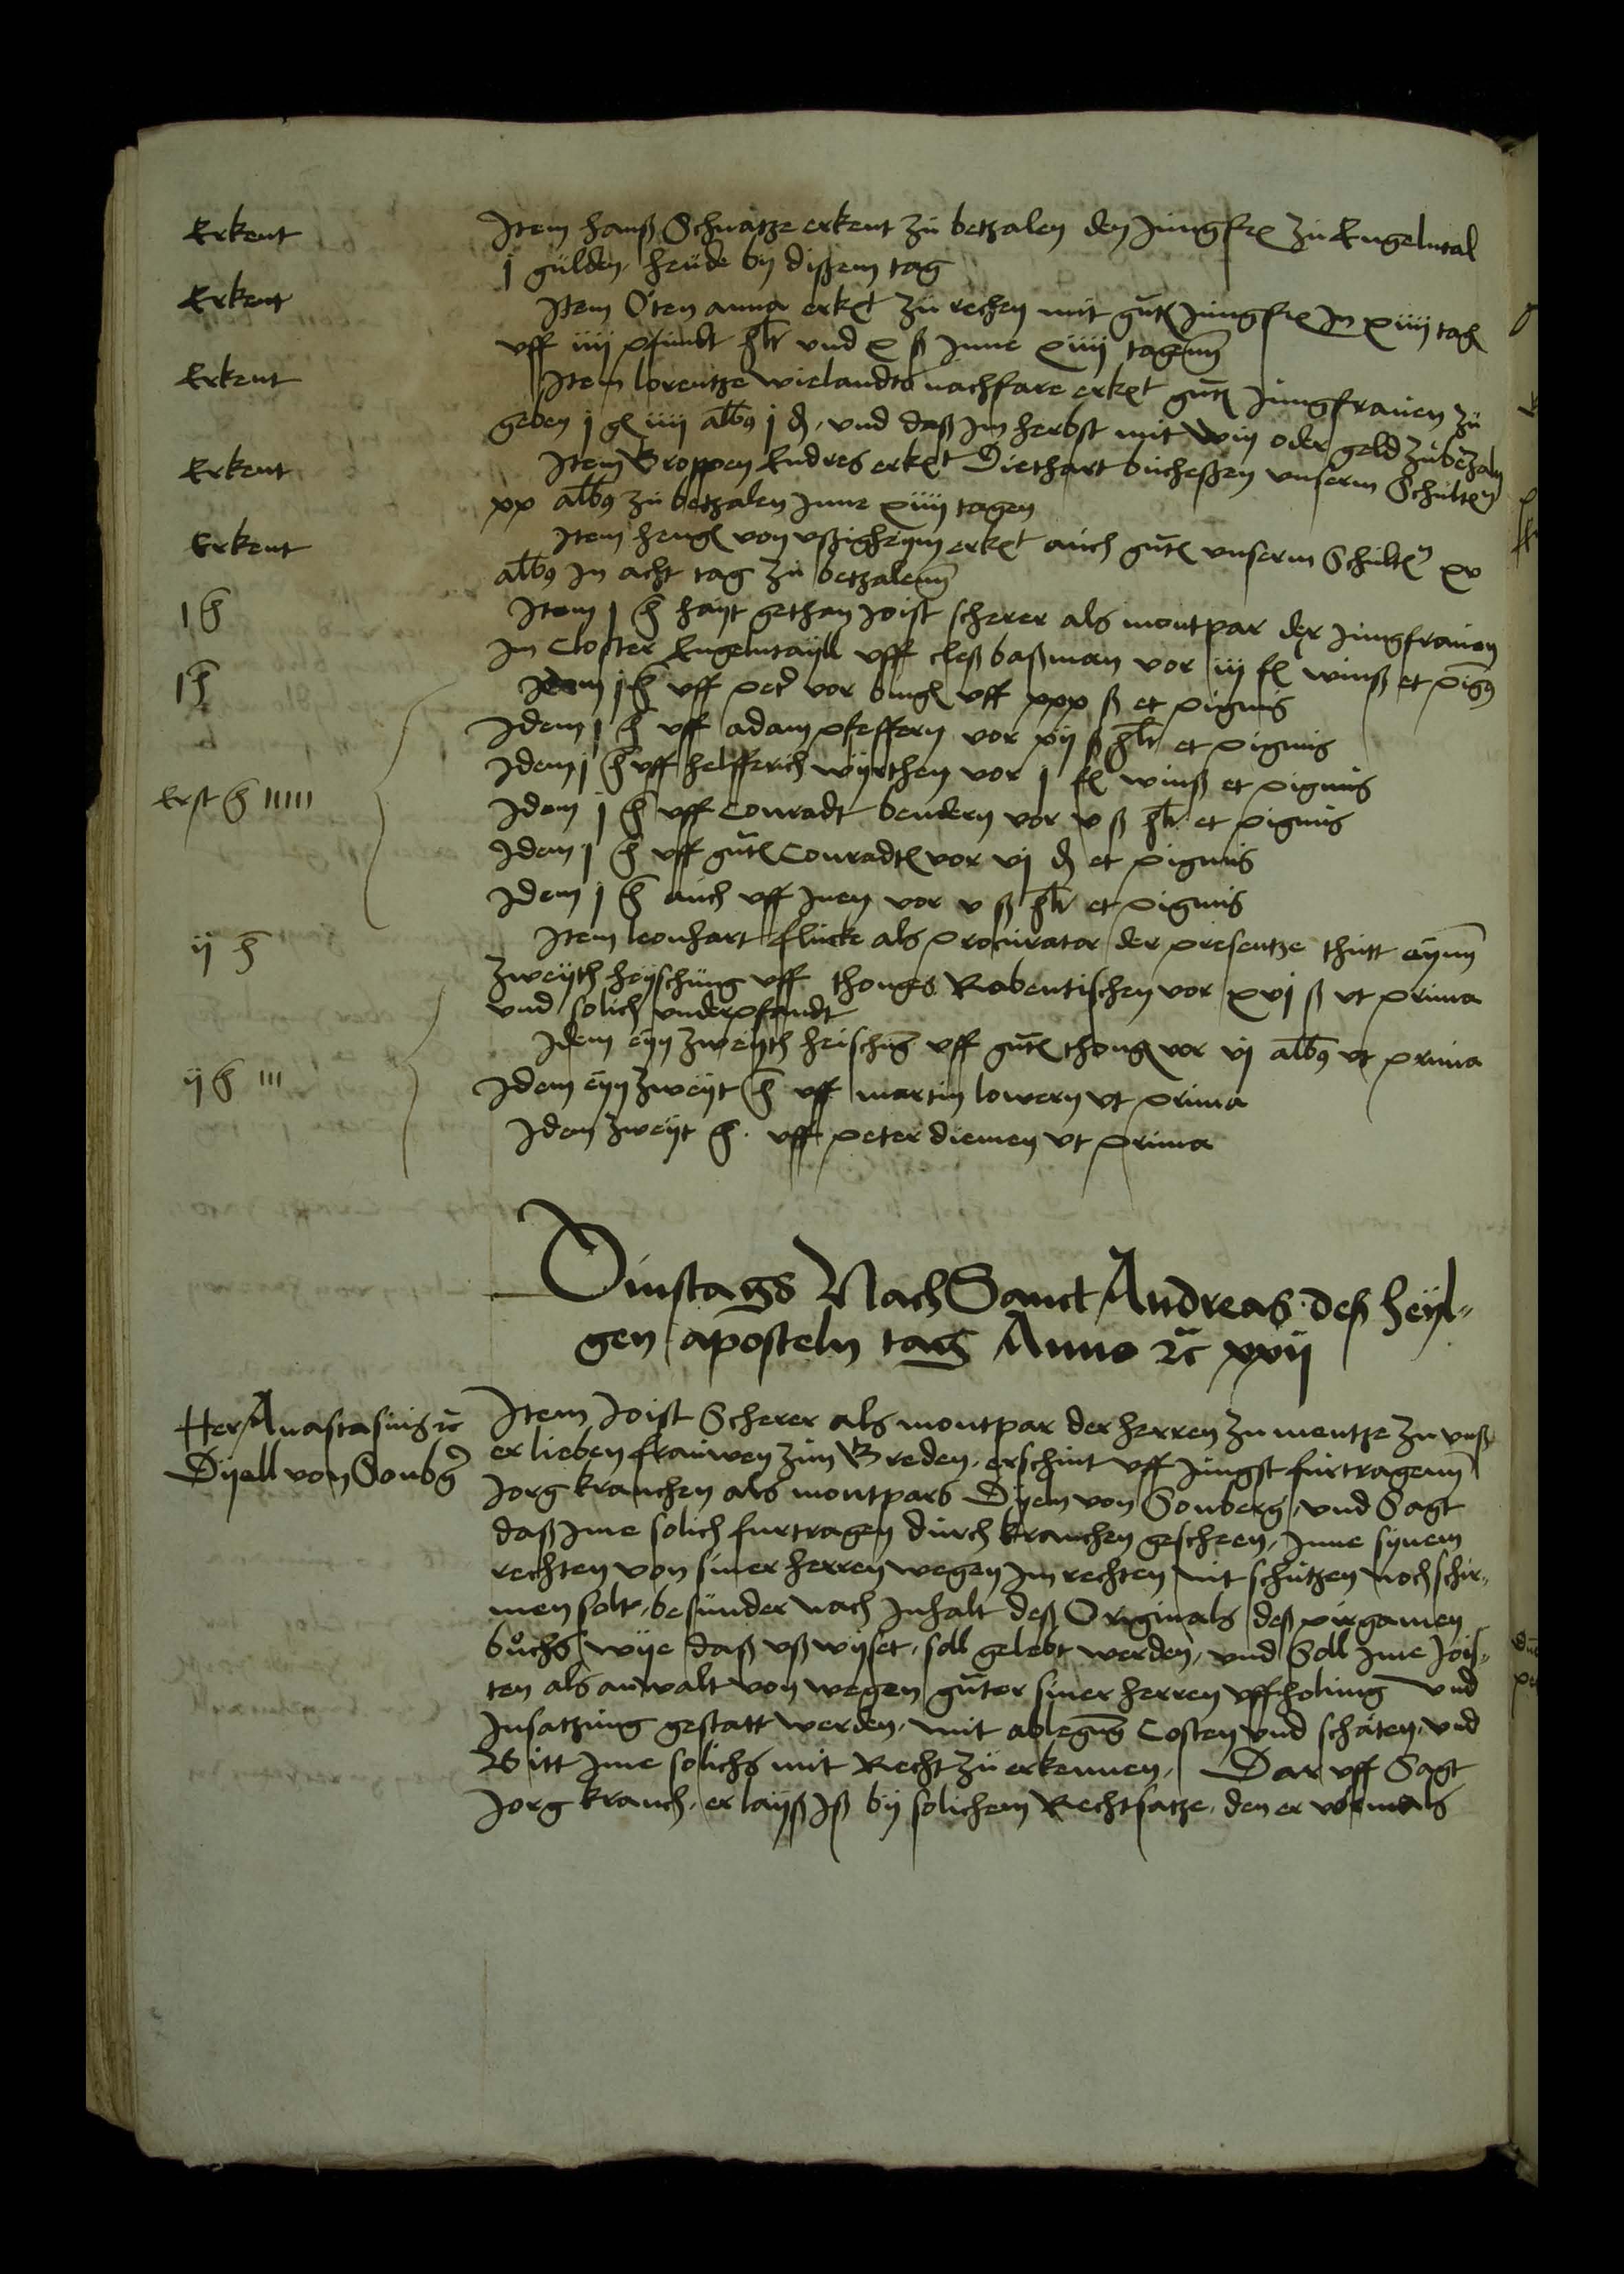 Erkent
Item Hanß Schnatze erkent zu betzalen den Jungfr zu Engelntal
j gulden. heude by dißem tag
Erkent
Item Oten anna erket zu rechen mit gut Jungfr Jn xiiij tag
uff iiij pfundt hlr und x ß Jnne xiiij tagenn
Erkent
Item lorentze wielandts nachfare erket gut Jungfrauen zu
geben j gl iiij alb9 j d, und daß jm herbst mit win oder geld zubezaln
Erkent
Item Groppen Endres erket Diethart bucheßen unserm Schulten
xx alb9 zu betzalen Jnne xiiij tagen
Erkent
Item heng von ußigheym erket auch gut unserm Schulte xv
alb9 jn acht tag zu betzalenn
1 h
Item j h hayt gethan Joist scherer als montpar der Jungfrauen
jm Closter Engelntayll uff cleß baßman vor iij fl winß et pig9
1 h
Idem j h uff pet vor bing uff xxx ß et pignus
Idem j h uff adam pfeffern vor xij ß hlr et pignus
Idem j h uff helfferich wyrthen vor j fl winß et pignus
Erst h 11111
Idem j h uff Conradt bendern vor v ß hlr et pignus
Idem j h uff gut Conradt vor vj d et pignus
Idem j h auch uff Jnen vor v ß hlr et pignus
ij h
Item leonhart flucke als procurator der presentze thutt eynn
zweyth heyschung uff thonges Rabentischen vor xvj ß ut prima
und solich underpfandt
Idem eyn zweyth heischug uff gut thong vor vj alb9 ut prima
ij h 111
Idem eyn zweyt h uff martin lowern ut prima
Idem zweyt h. uff peter diemen ut prima
Dinstags Nach Sanct Andreas deß heyl-
gen aposteln tag Anno rc xxij
Her Anastasius rc
Dyell von Sonbg
Item Joist Scherer als montpar der herren zu mentze zu unß
er lieben frauwen zun Greden, erschint uff jungst furtragenn
Jorg krauchen als montpars Dyeln von Sonberg, und Sagt
daß Jme solich furtragen durch krauchen gescheen, Jnne synem
rechten von siner herren wegen jm rechten nit schutzen noch schir-
men solt, besunder nach Jnhalt deß Originals deß pirgamen
buchs wye daß ußwyset, soll gelebt werden, und Soll Jme Jois-
ten als anwalt von wegen guter siner herren uffholung und
Jnsatzung gestatt werden, mit ablegug Costen und schaten, und
Bitt Jme solichs mit Recht zu erkennen, Dar uff Sagt
Jorg krauch, er layß Jß by solichem Rechtsatze, den er vormals